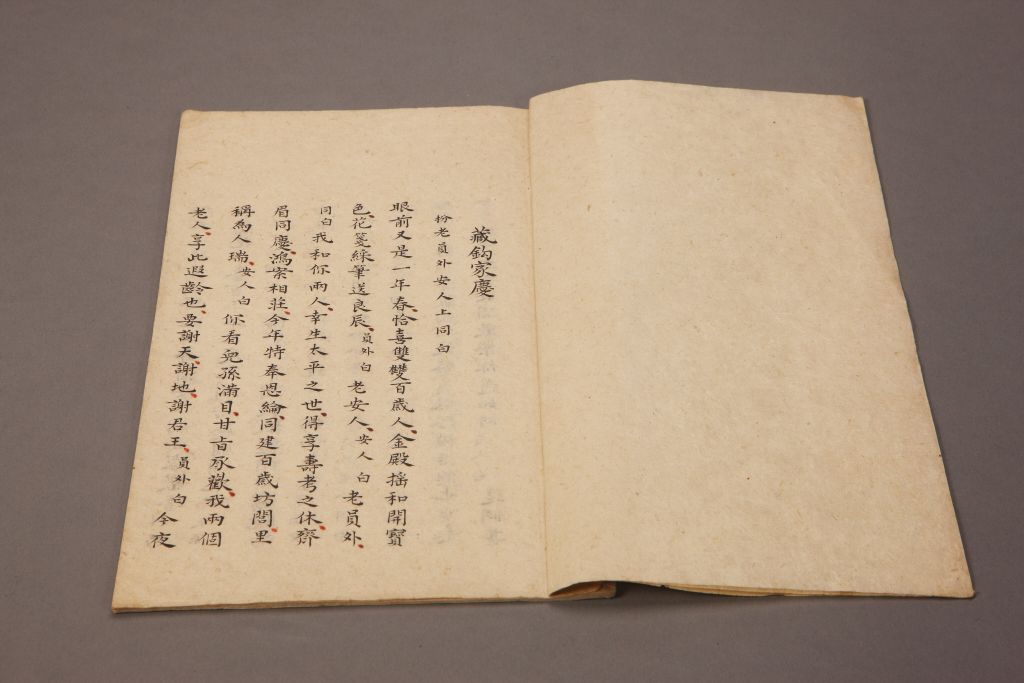 藏鈎家慶
扮老員外安人上同白
眼前又是一年春恰喜雙雙百歲人金殿搖和開寶
色花箋綵筆送良辰員外白 老安人安人白 老員外
同白 我和你兩人幸生太平之世得享壽考之休齊
眉同慶鴻案相莊今年特奉恩綸同建百歲坊閭里
稱為人瑞安人白 你看兒孫滿目甘旨承歡我兩個
老人享此遐齡也要謝天謝地謝君王員外白 今夜